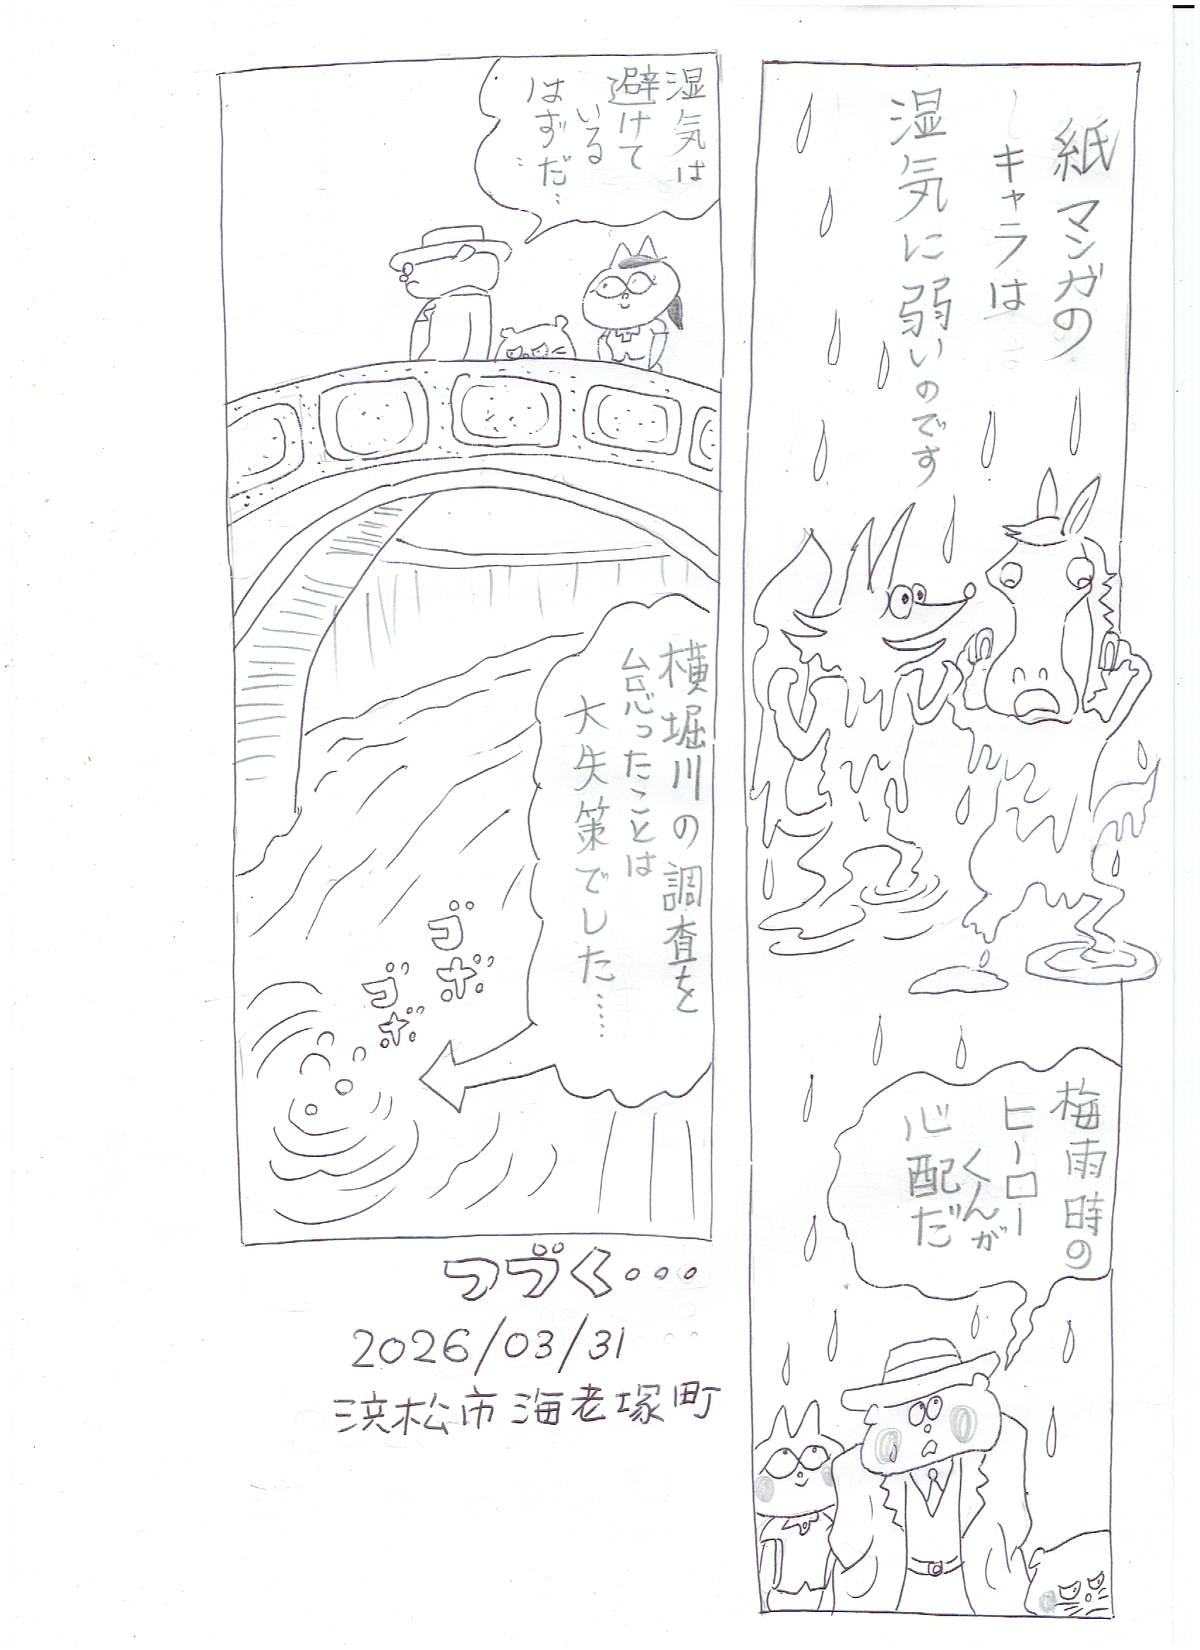 紙マンガの
キャラは
湿気に弱いのです
梅雨時の
ヒーロー
くんが
心配だ
湿気は
避けて
いる
はずだ…
横堀川の調査を
怠ったことは
大失策でした……
ゴボ
ゴボ
つづく...
2026/03/31
浜松市海老塚町